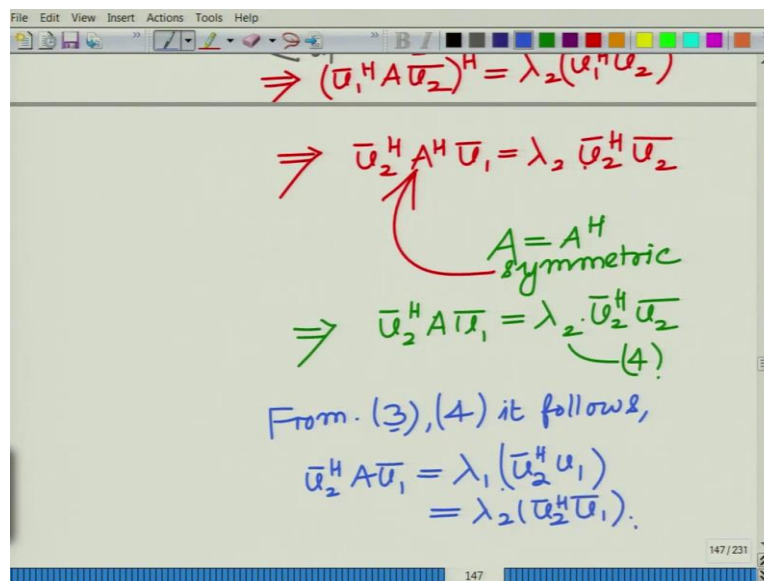 File Edit View Insert Actions Tools Help
⇒ (ū₁ᴴ A ū₂)ᴴ = λ₂(ū₁ᴴ ū₂)
⇒ ū₂ᴴ Aᴴ ū₁ = λ₂ ū₂ᴴ ū₂
A = Aᴴ
symmetric
⇒ ū₂ᴴ A ū₁ = λ₂ . ū₂ᴴ ū₂
(4)
From. (3), (4) it follows,
ū₂ᴴ A ū₁ = λ₁ (ū₂ᴴ u₁)
= λ₂ (ū₂ᴴ ū₁).
147/231
147